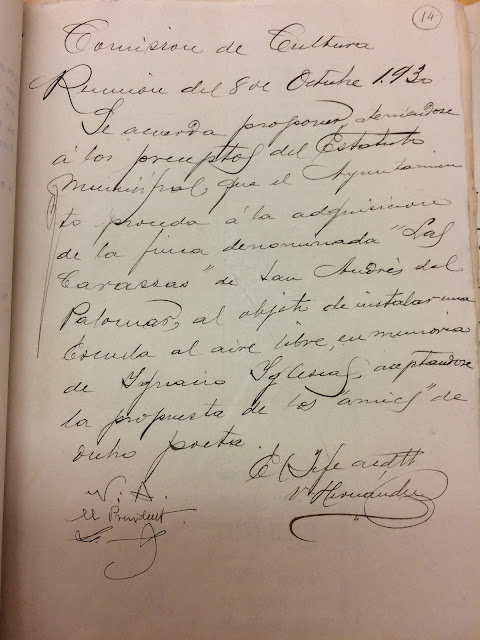 14
Comission de Cultura
Reunion del 8 de Octubre 1.930
Se acuerda proponer, ateniendose
á los preceptos del Estatuto
Municipal, que el Ayuntamien
to proceda á la adquisicion
de la finca denominada "Las
Carassas" de San Andrés del
Palomar, al objeto de instalar una
Escuela al aire libre, en memoria
de Ignacio Yglesias, aceptandose
la propuesta de los "amics" de
dicho poeta.
El Jefe
V. Hernández
V. B.
El President